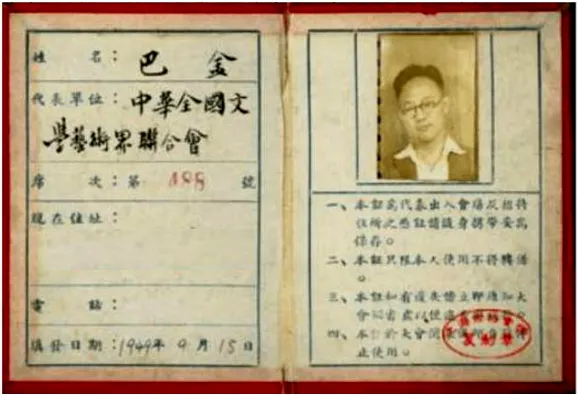 姓 名：巴金
代表單位：中華全國文
學藝術界聯合會
席 次：第 188 號
現在住址：
電 話：
填發日期：1949年9月15日
一、本証為代表出入會場及招待
住所之憑証請隨身攜帶妥為
保存。
二、本証只限本人使用不得轉借
。
三、本証如有遺失請立即通知大
會
四、本
止使用。